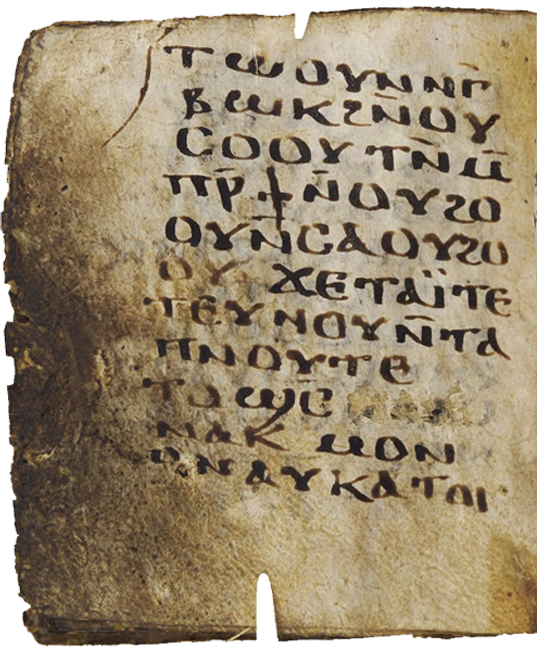 ⲧⲱⲟⲩⲛⲛⲅ̄
ⲃⲱⲕϩⲛ̄ⲟⲩ
ϭⲟⲟⲩⲧⲛ̄ⲙ̄
ⲡⲣ̄ϯⲛ̄ⲟⲩϩⲟ
ⲟⲩⲛ̄ⲥⲁⲟⲩϩⲟ
ⲟⲩ ϫⲉⲧⲁⲓ̈ⲧⲉ
ⲧⲉⲩⲛⲟⲩⲛ̄ⲧⲁ
ⲡⲛⲟⲩⲧⲉ
ⲧⲟϣⲥ̄
ⲛⲁⲕ ⲙⲟⲛ